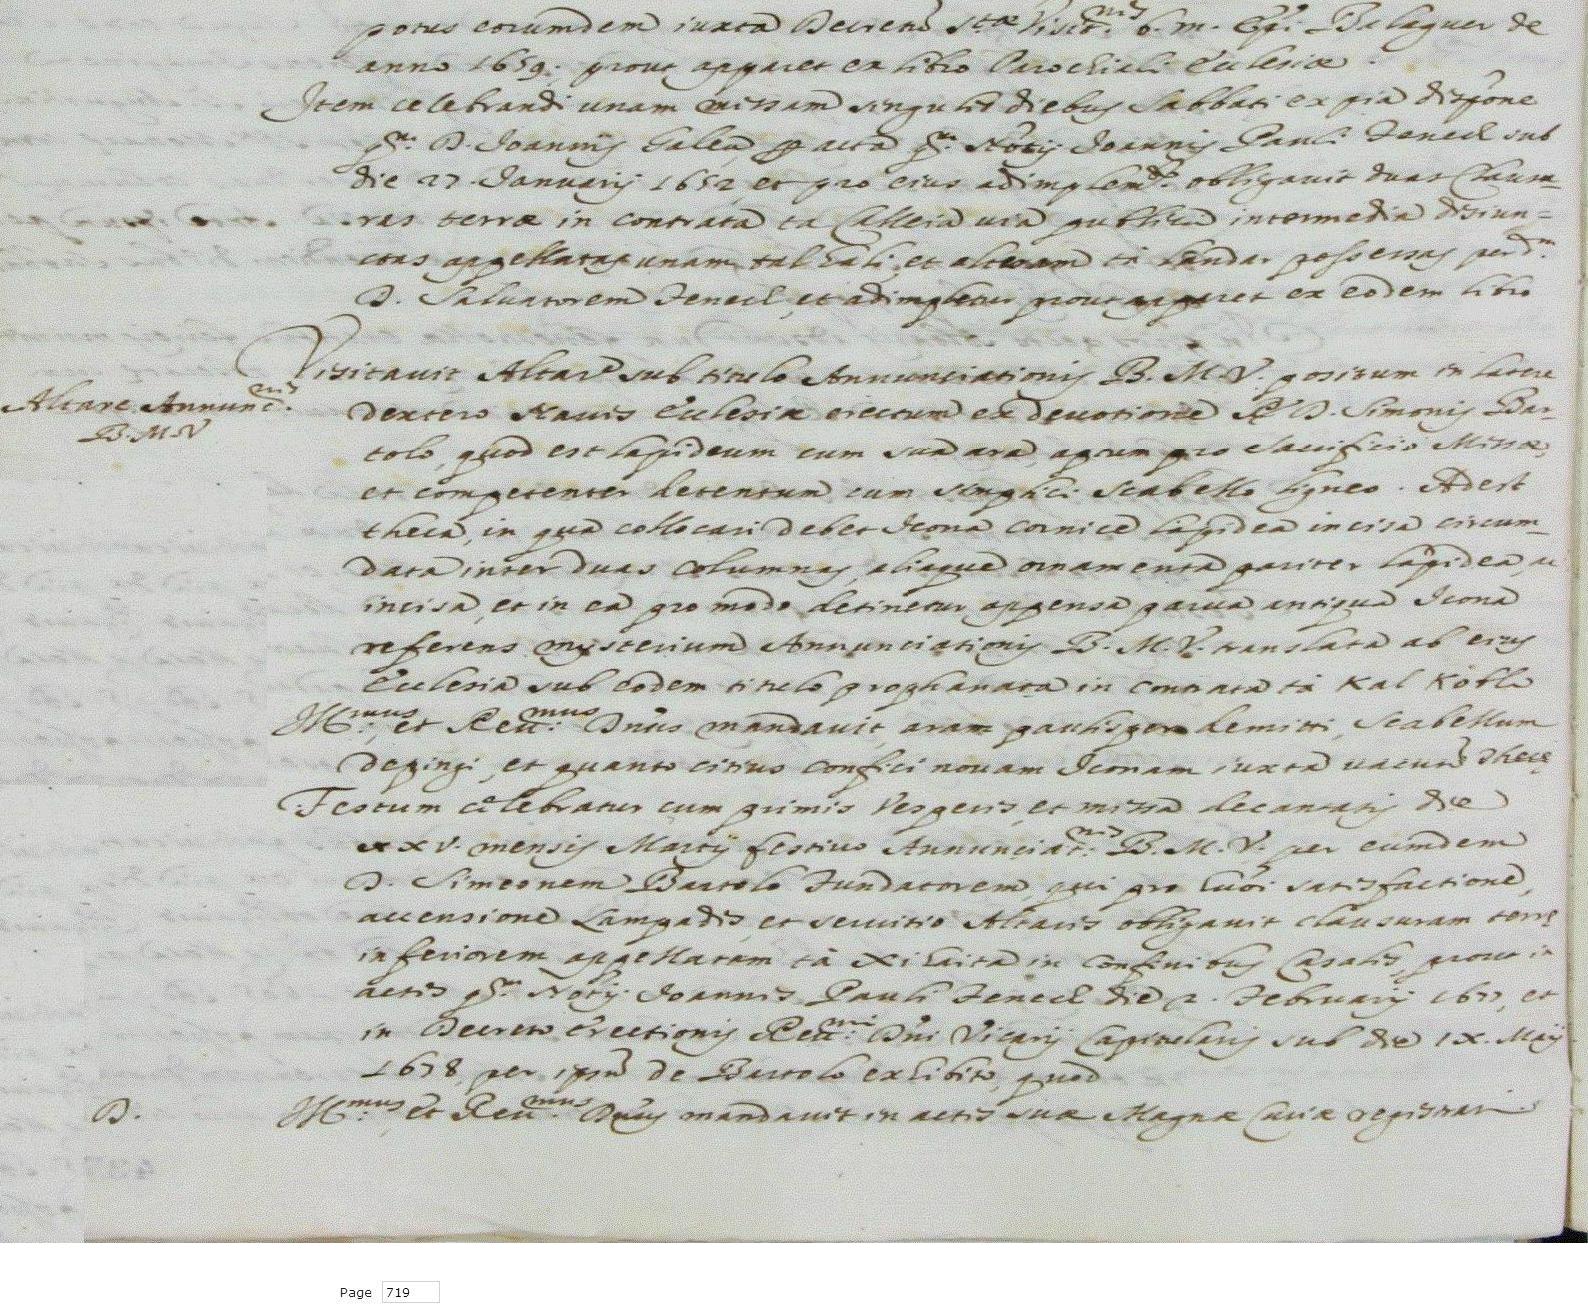 potus eorumdem iuxta Decretũ Stæ Visit.nis b. m. Epi. Balaguer de
anno 1659. prout apparet ex libro Parochiali Ecclesiæ.
Item celebrandi unam missam singulis diebus Sabbati ex pia dispōne
qm. D. Joannis Galea, per acta qm. Notrij Joannis Pauli Fenech sub
die 27 Januarij 1652, et pro eius adimplemto. obligavit duas clausu-
ras terræ in contrata ta Calleia via publica intermedia disiun=
ctas appellatas unam tal Ghali, et alteram ta possessas per dm.
D. Salvatorem Fenech, et adimpletur prout apparet ex eodem libro
Visitavit Altare sub titulo Annunciationis B. M. V. positum in latere
Altare Annunc.nis
B. M. V
dextero Navis Ecclesiæ erectum ex devotione R. D. Simonis Bar-
tolo, quod est lapideum cum sua ara, aptum pro Sacrificio Missæ,
et competenter detentum cum simplici scabello ligneo. Adest
theca, in qua collocari debet Icona cornice lapidea incisa circum-
data inter duas columnas, aliaque ornamenta pariter lapidea, ac
incisa, et in ea pro modo detinetur appensa parva antiqua Icona
referens mysterium Annunciationis B. M. V. translata ab eius
Ecclesia sub eodem titulo prophanata in contrata ta Kal Kbble
Ill.mus, et Rev.mus Dnus mandavit, aram paulisper demitti, scabellum
depingi, et quanto citius confici novam Iconam iuxta vacuũ thecę
Festum celebratur cum primis Vesperis, et missa decantatis die
xxv. mensis Martij festivo Annunciat.nis B. M. V. per eumdem
D. Simeonem Bartolo Fundatorem, qui pro huõi satisfactione,
accensione Lampadis, et servitio Altaris obligavit clausuram terrę
inferiorem appellatam ta Xihaita in confinibus Casalis, prout in
actis qm. Notrij Joannis Pauli Fenech die 2. Februarij 1677, et
in Decreto Erectionis Rev.mi Dni Vicarij Capitularis sub die IX. Maij
1678, per ipsũ de Bartolo exhibito, quod
D. Ill.mus, et Rev.mus Dnus mandavit in actis suæ Magnæ Curiæ registrari.
Page 719